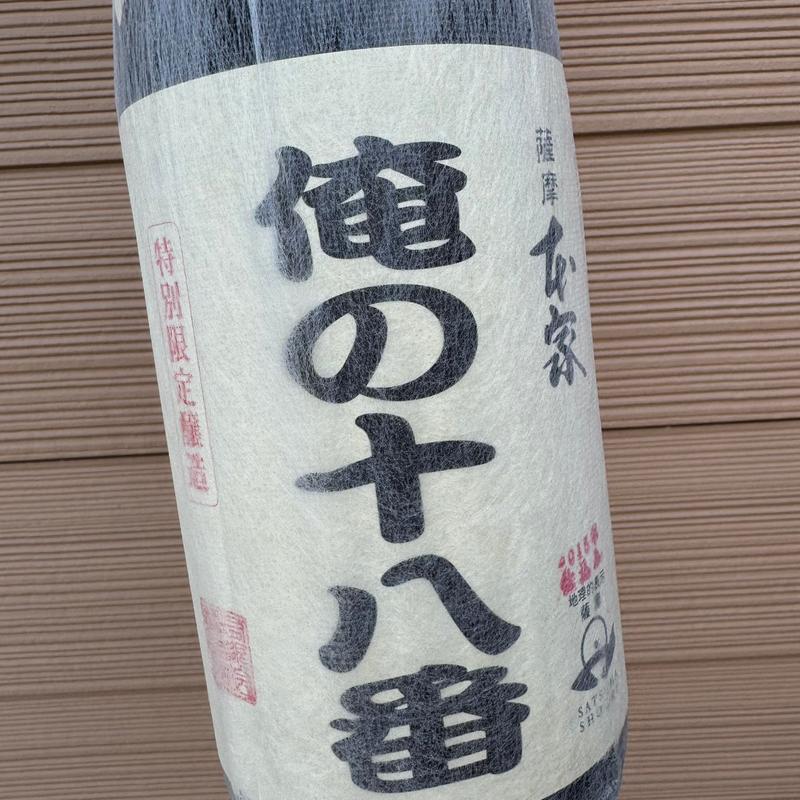 薩摩
本家
俺の十八番
特別限定醸造
地理的表示
薩摩
SATSUMA
SHOCHU